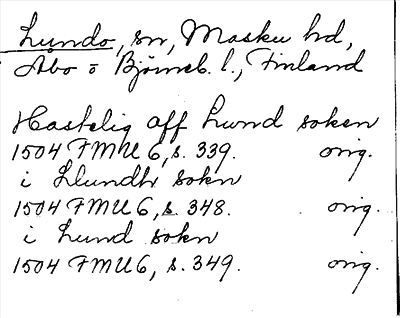 Lundo, sn, Masku hd,
Åbo o Björneb. l., Finland
Hastelig aff Lund soken
1504 FMU 6, s. 339. orig.
i Llundh sokn
1504 FMU 6, s. 348. orig.
i Lund sokn
1504 FMU 6, s. 349. orig.